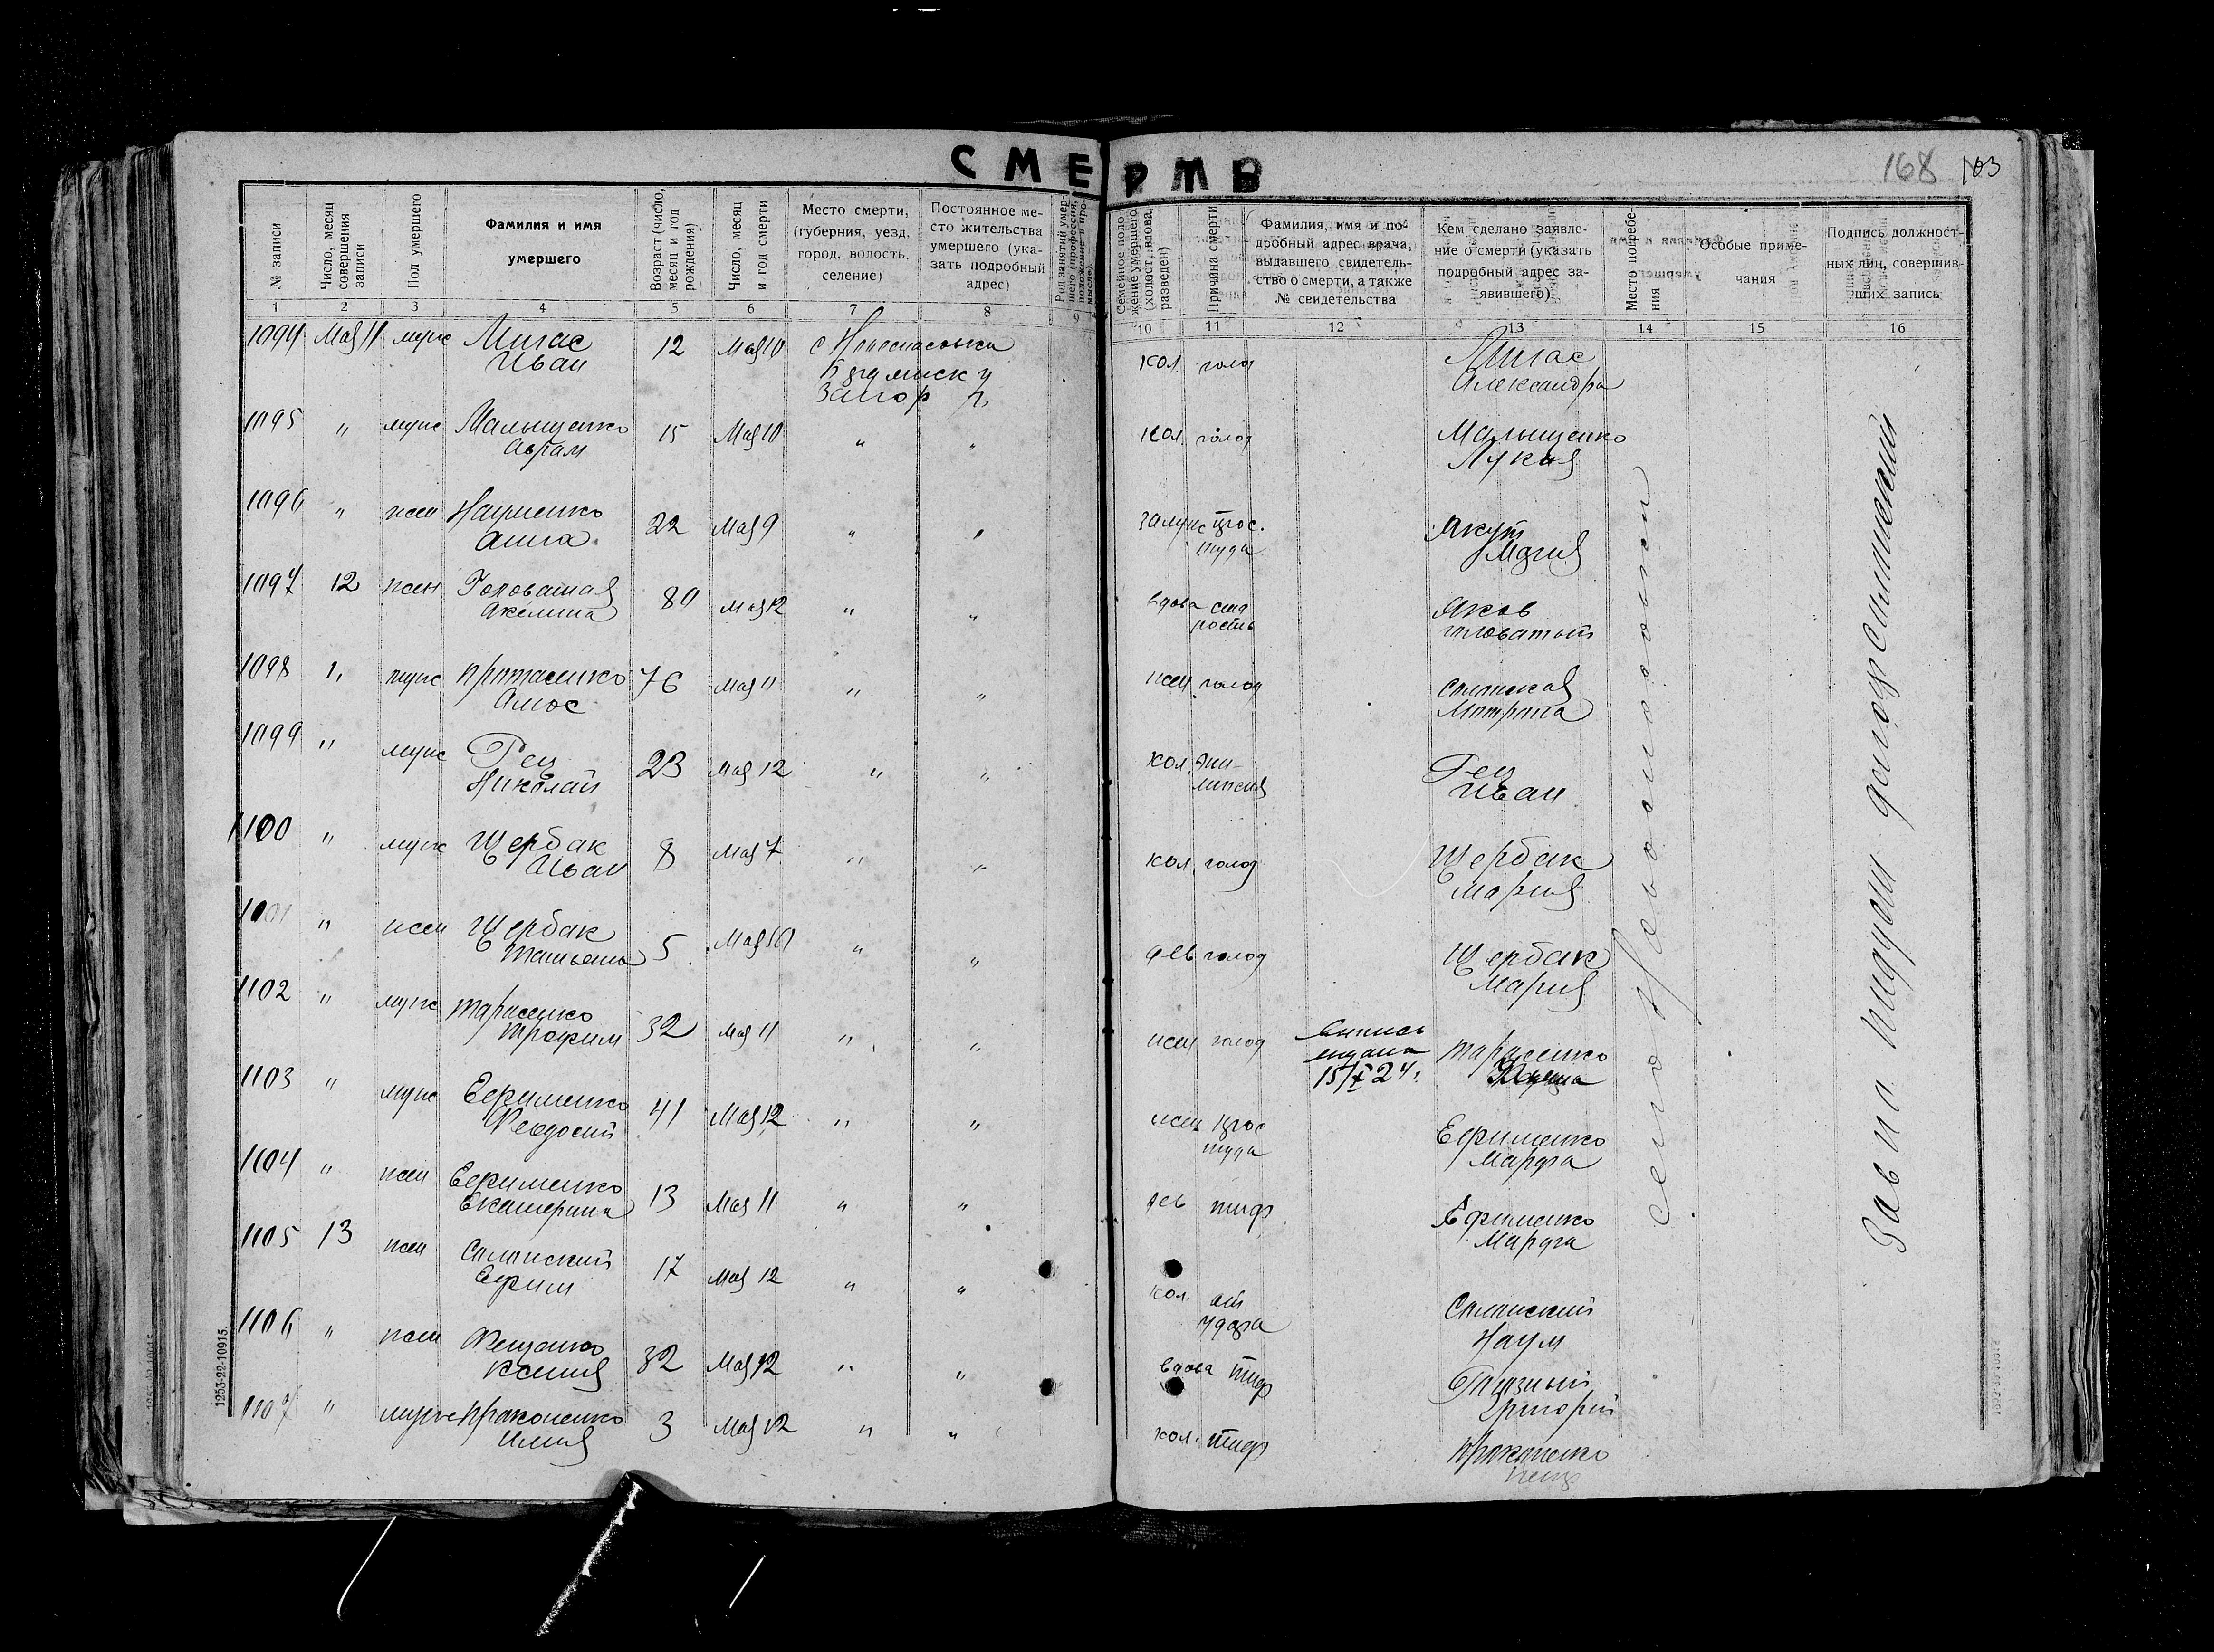 СМЕРТЬ
168 103
№ записи
Число, месяц совершения записи
Пол умершего
Фамилия и имя умершего
Возраст (число, месяц и год рождения)
Число, месяц и год смерти
Место смерти, (губерния, уезд, город, волость, селение)
Постоянное место жительства умершего (указать подробный адрес)
Семейное положение умершего (холост, вдова, разведен)
Причина смерти
Фамилия, имя и подробный адрес врача, выдавшего свидетельство о смерти, а также № свидетельства
Кем сделано заявление о смерти (указать подробный адрес заявившего)
Место погребения
Особые примечания
Подпись должностных лиц, совершивших запись
1 2 3 4 5 6 7 8 9 10 11 12 13 14 15 16
1094 Мая 11 муж Мигас Иван 12 Мая 10 с Новоспасовка Запор кол голод Мигас Александра
1095 " муж Малыщенко Аврам 15 Мая 10 " " кол. голод Малыщенко Лукия
1096 " жен Науменко Анна 22 Мая 9 " " замуж прос. туда Якут Мария
1097 12 жен Головатая Акелина 80 Мая 12 " " вдова ста рость Яков головатый
1098 " муж Протасенко Амос 76 Мая 11 " " жен. голод Матрона
1099 " муж Гец Николай 23 Мая 12 " " кол. Эпи- лепсия Гец Иван
1100 " муж Щербак Иван 8 Мая 7 " " кол. голод Щербак Мария
" жен Щербак Татьяна 5 Мая 10 " " дев голод Щербак Мария
1102 " муж Тарасенко Трофим 32 Мая 11 " " жен голод 15/X 24 г. Тарасенко
1103 " муж Ефименко Феодосий 41 Мая 12 " " жен прос туда Ефименко Марфа
1104 " жен Ефименко Екатерина 13 Мая 11 " " дев тиф Ефименко Марфа
1105 13 жен Ефим 17 Мая 12 " " кол. от удара Наум
1106 " жен Фещенко Ксения 32 Мая 12 " " вдова тиф Григорий
1107 " муж Проконенко Илия 3 Мая 12 " " кол. тиф Проконенко
село Новоспасовка
1253-22-10915.